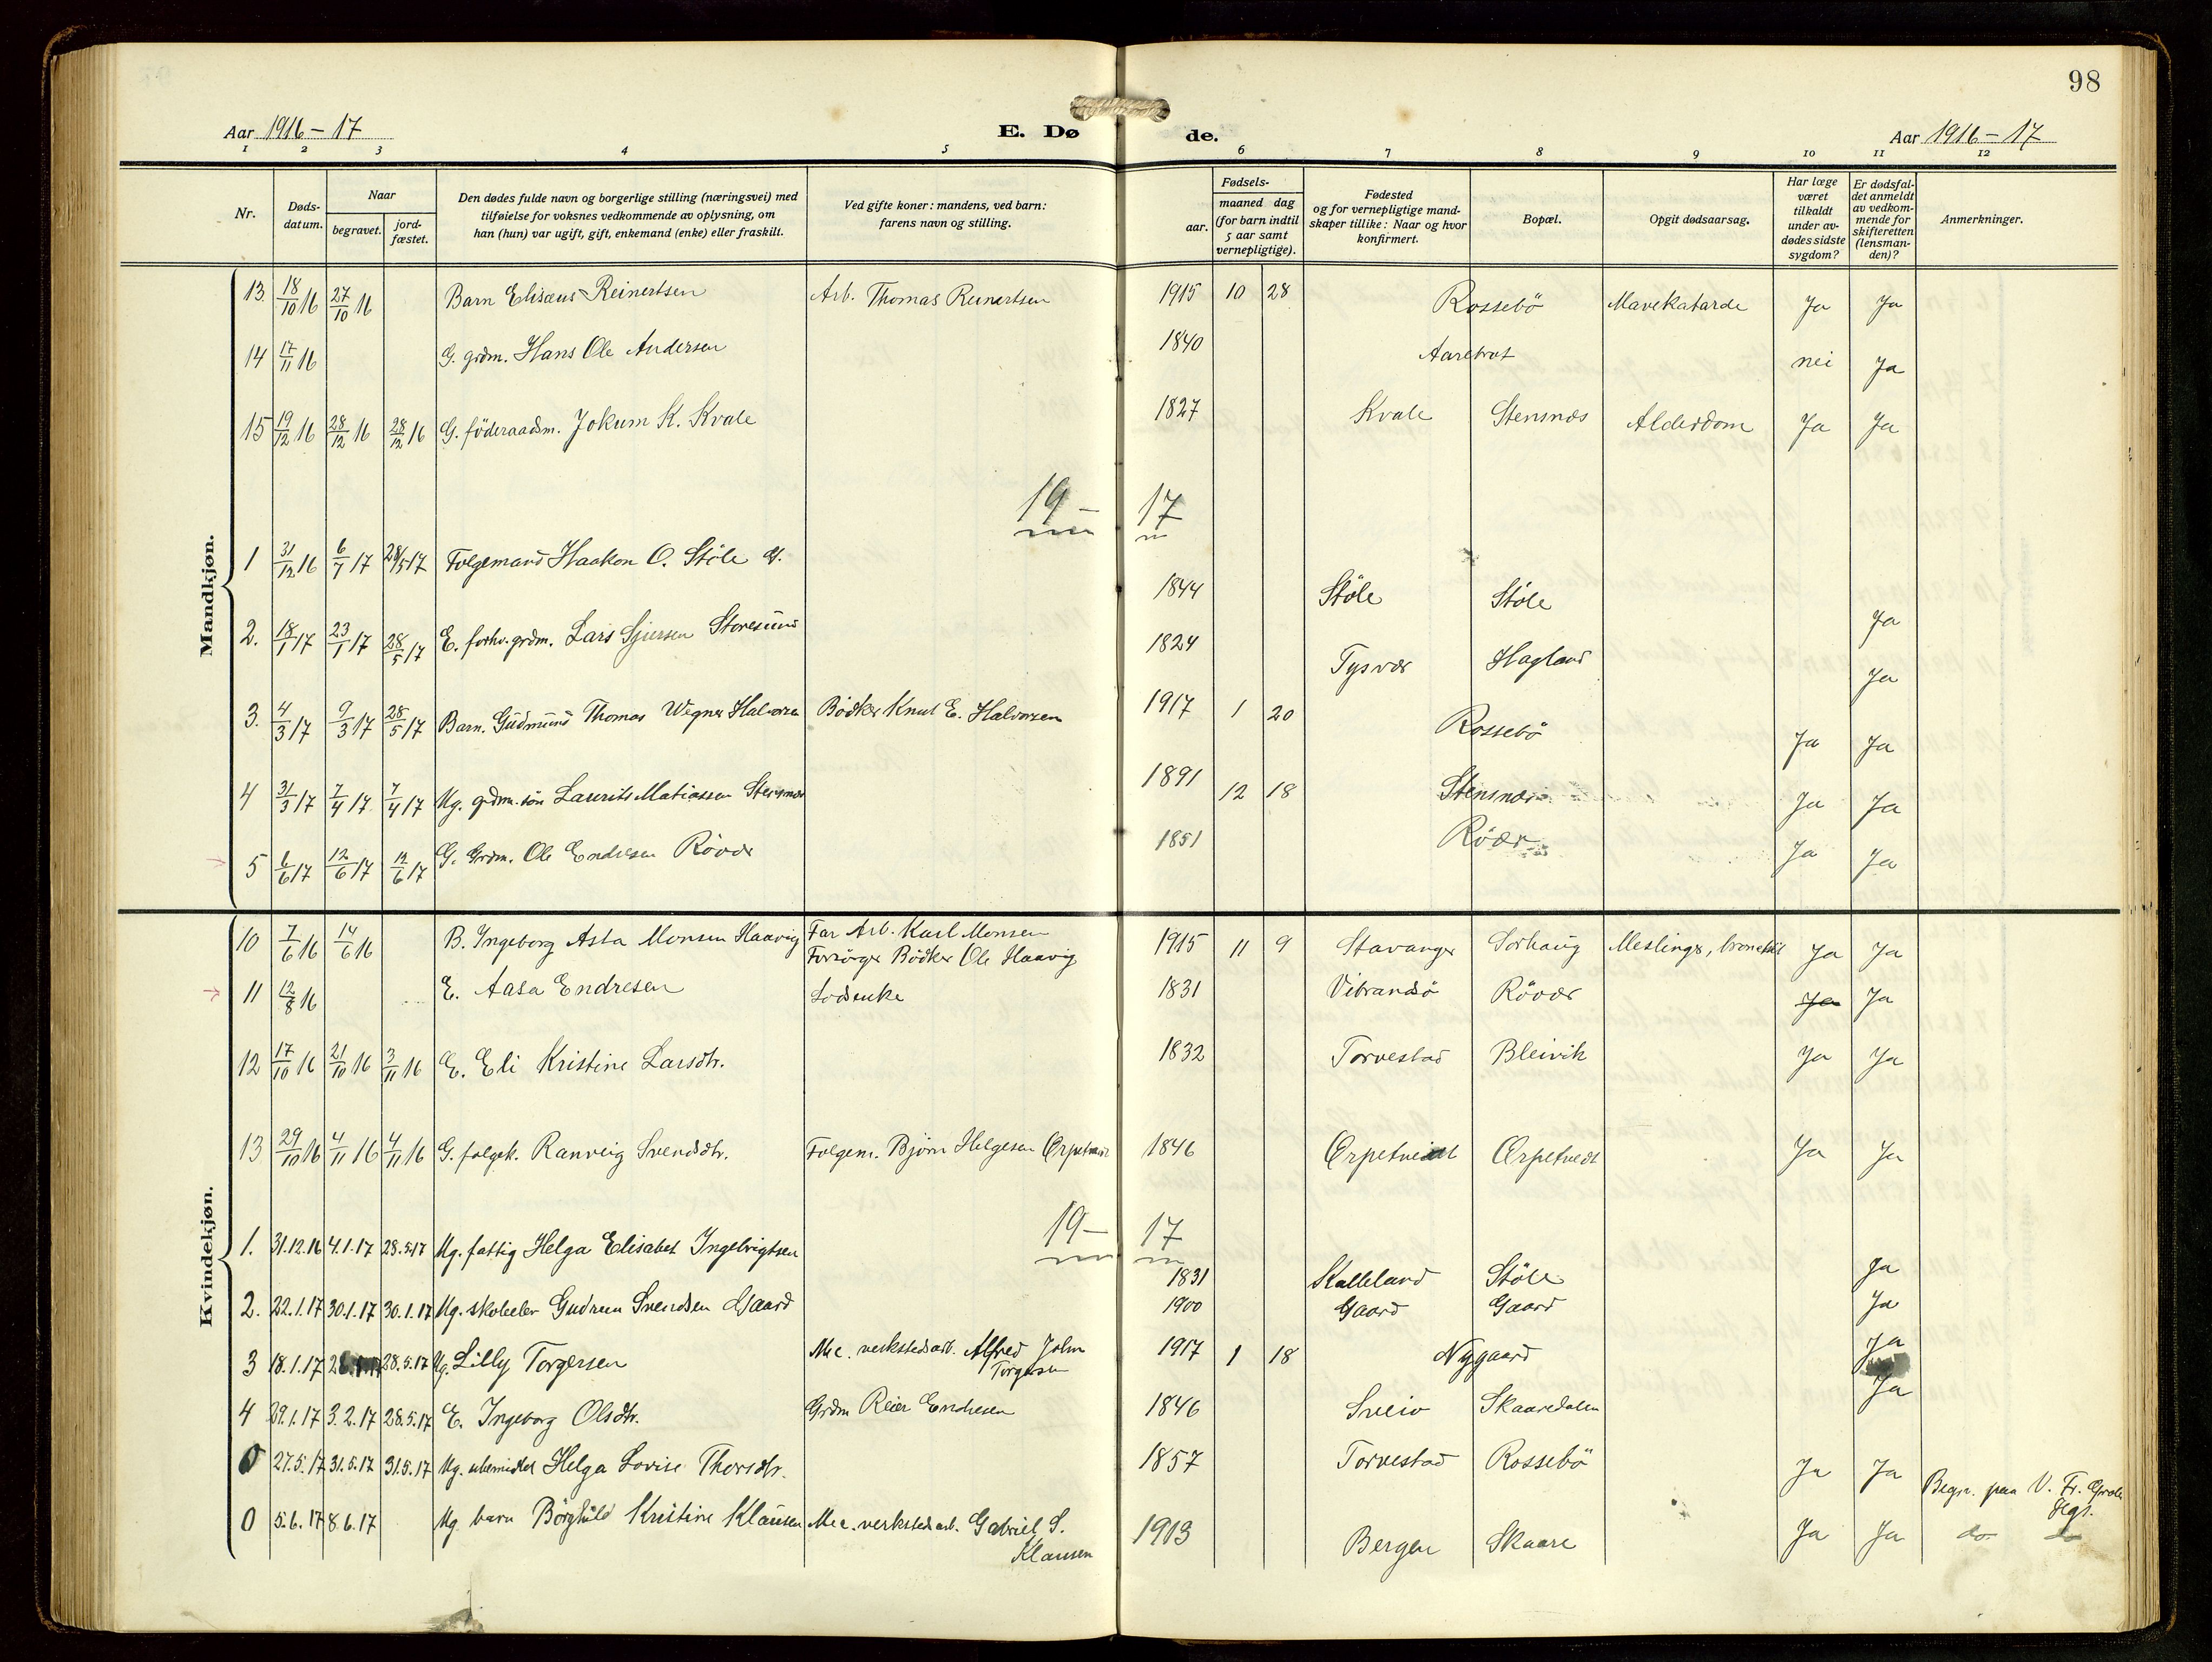 98
Aar 1916-17
E. Dø de.
Aar 1916-17
1 2 3 4 5 6 7 8 9 10 11 12
Nr.
Døds-datum.
Naar
begravet.
jord-fæstet.
Den dødes fulde navn og borgerlige stilling (næringsvei) med
tilføielse for voksnes vedkommende av oplysning, om
han (hun) var ugift, gift, enkemand (enke) eller fraskilt.
Ved gifte koner: mandens, ved barn:
farens navn og stilling.
Fødsels-
aar. maaned dag
(for barn indtil
5 aar samt
vernepligtige).
Fødested
og for vernepligtige mand-
skaper tillike: Naar og hvor
konfirmert.
Bopæl.
Opgit dødsaarsag.
Har læge
været
tilkaldt
under av-
dødes sidste
sygdom?
Er dødsfal-
det anmeldt
av vedkom-
mende for
skifteretten
(lensman-
den)?
Anmerkninger.
Mandkjøn.
13. 18/10 16 27/10 16 Barn Elisæus Reinertsen Arb. Thomas Reinertsen 1915 10 28 Rossebö Mavekatarde Ja Ja
14 17/11 16 G. grdm. Hans Ole Andersen 1840 Aarebrot nei Ja
15 19/12 16 28/12 16 28/12 16 G. föderaadsm. Jokum K. Kvale 1827 Kvale Stensnæs Alderdom Ja Ja
19- 17
1 31/12 16 6/1 17 28/5 17 Folgemand Haakon O. Stöle G. 1844 Stöle Stöle Ja
2. 18/1 17 23/1 17 28/5 17 E. forhv. grdm. Lars Sjursen Storesund 1824 Tysvær Hagland Ja
3. 4/3 17 9/3 17 28/5 17 Barn. Gudmund Thomas Wegner Halvorsen Bödker Knut E. Halvorsen 1917 1 20 Rossebö Ja Ja
4 31/3 17 7/4 17. 7/4 17 Ug. grdm. sön Laurits Matiassen Stensnæs 1891 12 18 Stensnæs Ja Ja
5 6/6 17 12/6 17 12/6 17 G. Grdm. Ole Endresen Rövær 1851 Rövær Ja Ja
Kvindekjøn.
10 7/6 16 14/6 16 B. Ingeborg Asta Monsen Haavig Far Arb. Karl Monsen
Forsörger Bödker Ole Haavig 1915 11 9 Stavanger Sörhaug Meslinger, Ja Ja
11 12/8 16 E. Aasa Endresen Lodsenke 1831 Vibrandsö Rövær Ja Ja
12 17/10 16 21/10 16 3/11 16 E. Eli Kristine Larsdtr. 1832 Torvestad Bleivik Ja Ja
13 29/10 16 4/11 16 4/11 16 G. folgek. Ranveig Svendsdtr. Folgem. Bjørn Helgesen Ørpetvedt 1846 Ørpetveidt Ørpetvedt Ja Ja
19- 17
1. 31.12.16 4.1.17 28.5.17 Ug. fattig Helga Elisabet Ingebrigtsen 1831 Kalleland Stöle Ja
2. 22.1.17 30.1.17 30.1.17 Ug. skoleelev Gudrun Svendsen Gaard 1900 Gaard Gaard Ja
3 18.1.17 28.5.17 Ug. Lilly Torgersen Mec. verkstedsarb. Alfred John
Torgersen 1917 1 18 Nygaard Ja
4 29.1.17 3.2.17 28.5.17 E. Ingeborg Olsdtr. Grdm Reier Endresen 1846 Sveio Skaaredalen Ja
0 27.5.17 31.5.17 31.5.17 Ug. ubemidlet Helga Lovise Thorsdtr. 1857 Torvestad Rossebö Ja Ja Begr. paa V. Fr.
Hgs.
0 5.6.17 8.6.17 Ug. barn Borghild Kristine Klausen Mec. verkstedsarb. Gabriel S.
Klausen 1913 Bergen Skaare Ja Ja do